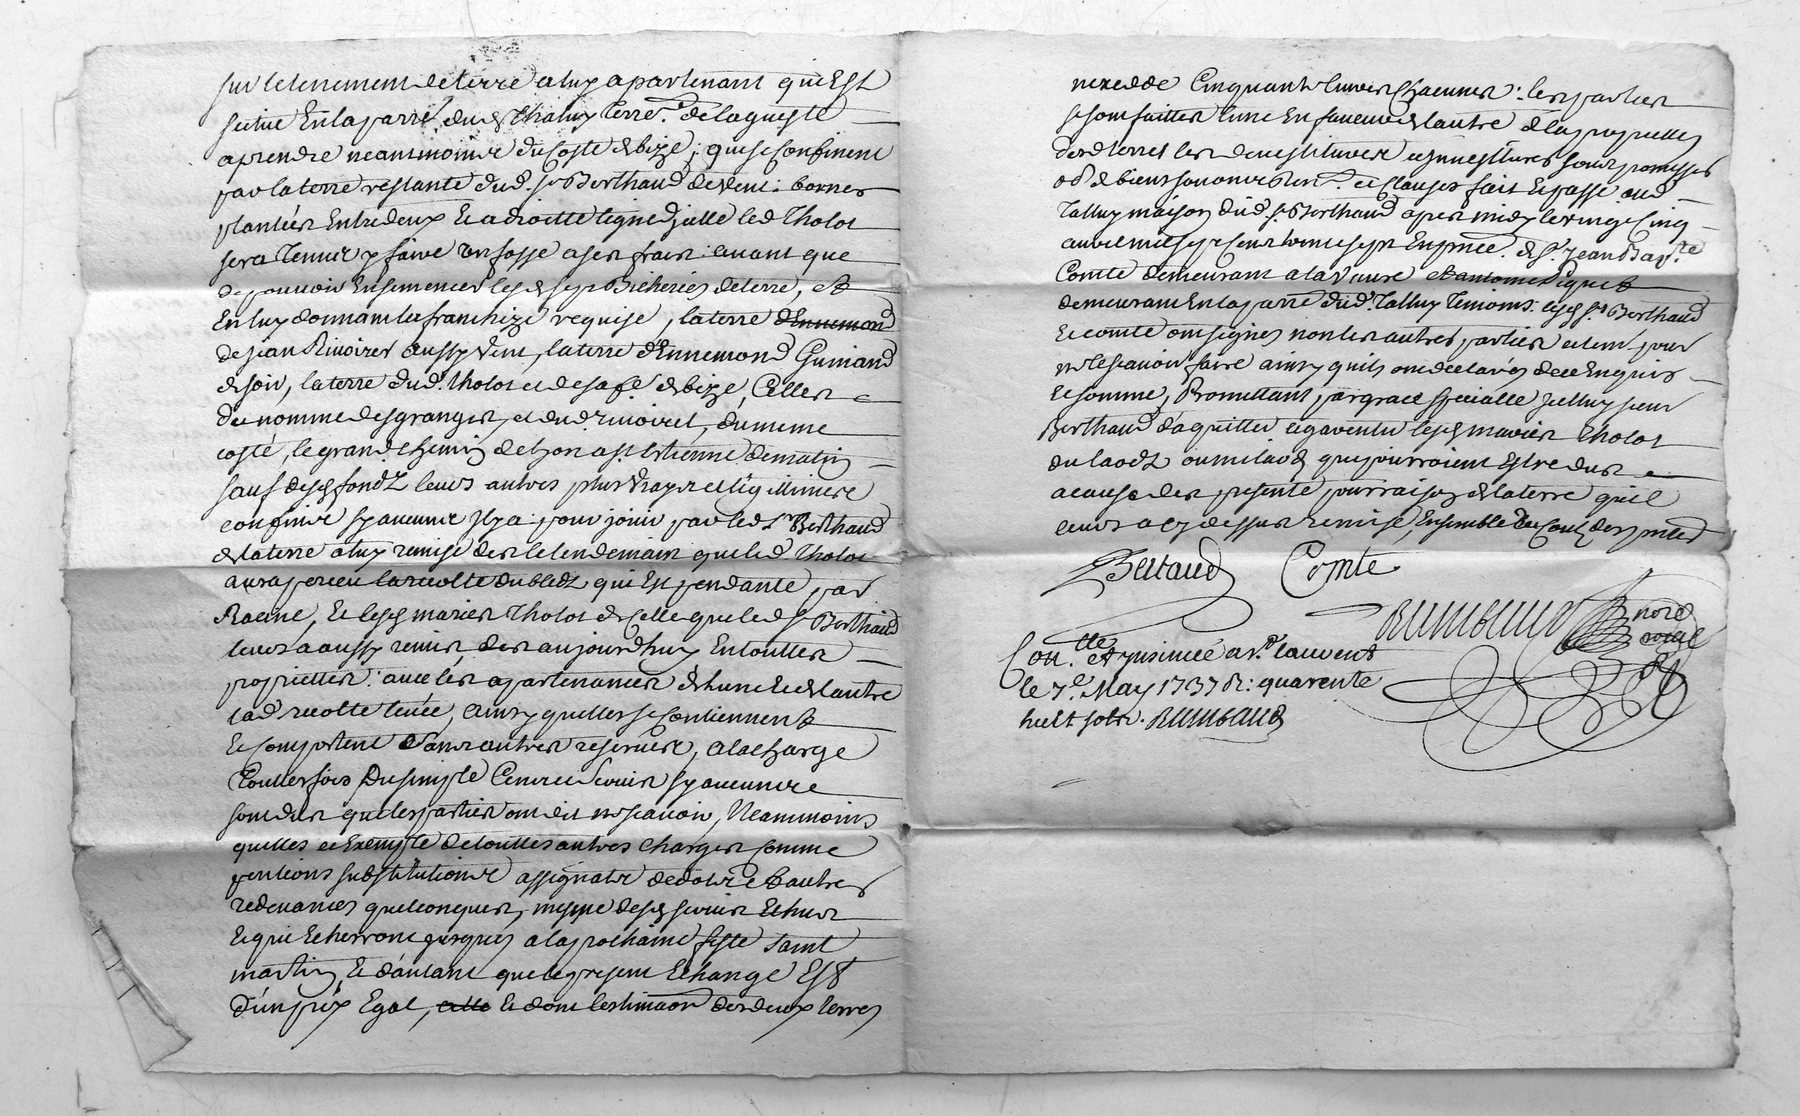 sur le tenement de terre a luy apartenant qui Est
scitue En la parre dud Thaluy Terre. de laquelle
aprendre neantmoins du Coste de bize; qui se Confinent
par la terre restante dud. Sr Berthaud de vent: bornes
plantées Entredeux Et a droitte ligne, jcelle led Tholot
sera Tenue y faire un fosse a ses frais avant que
de pouvoir Ensemencer lesd sept Bicherées de terre, Et
En luy donnant la franchize requise, la terre d'Ennemond
de jean Rivoires aussy vent, la terre d'Ennemond Guinand
de soir, la terre dud. Tholot et de sa fe. de bize, Celles
du nomme desgranges, et dud. rivoires, du meme
costé, le grand chemin de Lyon a St. Estienne de matin
sauf desd fondz leurs autres plus vrays et légittimes
confins sy aucuns jl y a: pour jouir par led Sr Berthaud
de la terre a luy remise des le lendemain que led Tholot
aura perceu la recolte du bledz qui Est pendante par
Racine, Et lesd mariés Tholot de celle que led Sr Berthaud
leurs a aussy remis des aujourdhuy En touttes
proprietter: avec les apartenances de lune Et de lautre
lad. recolte levée, ainsy quelles se Contiennent
Et comportent sans autres reserves, a la charge
Touttesfois Du simple Cens et servis sy aucuns
sont dus que les parties ont dit ne scavoir, Neanmoins
quittes et Exempte de touttes autres charges comme
pentions substitutions assignats de dots et autres
redevances quelconques, mesme desd servis Echus
Et qui Echerront jusques a la prochaine feste saint
martin Et dautant que le present Echange Est
D'un prix Egal, Et dont l'estimaon des deux terres
de Cinquante livres Chacune: les parties
se sont faittes lune En faveur de lautre
desd terres les devestitures et jnvestitures sous promesses
obd. de biens renons. et Clauses fait Et passe aud
Talluy maison dud. Sr Berthaud apres midy le vingt Cinq
avril mil sept cent trente sept En pnce. de Sr. Jean Bapte.
Comte demeurant a la et antoine Piquet
demeurant En la parre dud. Talluy Temoins: lesd Srs Berthaud
Et comte ont signés non les autres parties et tem. pour
ne le scavoir faire ainsy quils ont declarés de ce Enquis
Et somme, Promettant par grace specialle jcelluy sieur
Berthaud d'aquitter et garentir lesd mariés Tholot
du laodz ou milaod que pourroient Estre dus
a cause des presente pour raison de la terre quil
leurs a cy dessus remise, Ensemble du Coust des pntes
Bertaud Comte
nore
royal
Conlle. Et jnsinué a St. laurent
le 7e. May 1737 R: quarente
huit sols.